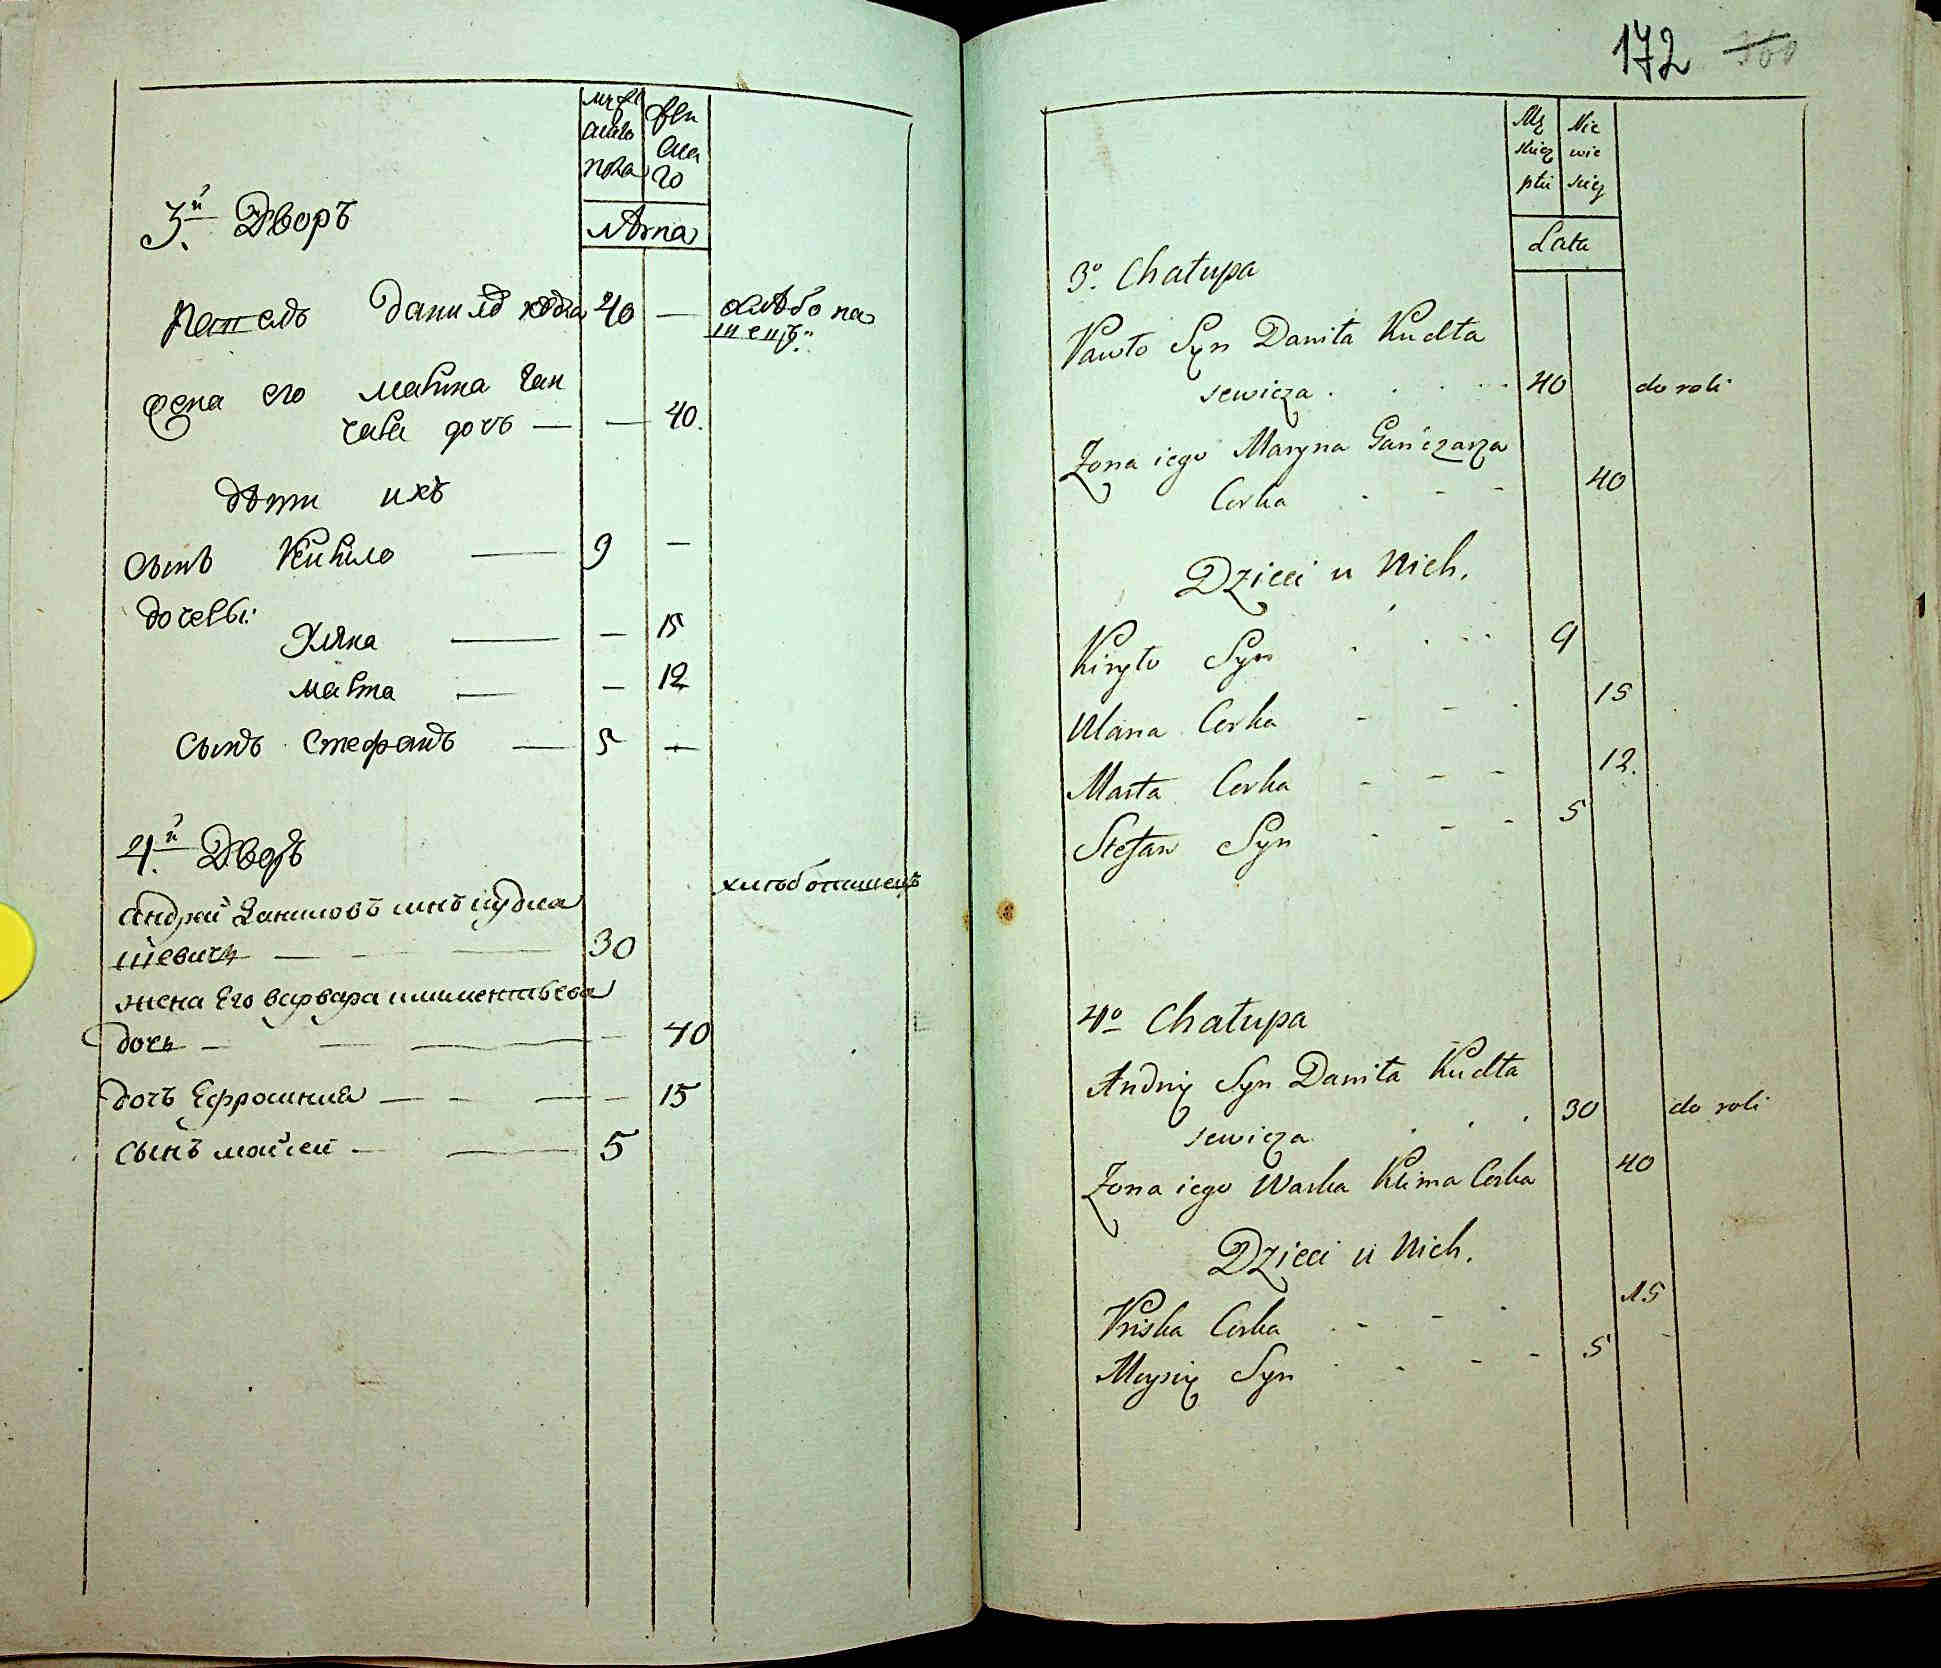 мужс
каго
пола
жен
ска
го
Лѣта
3.й Дворъ
Павелъ Данилъ кудла 40 — хлѣбо па
шецъ.
жена его Марина ган
чара дочъ — — 40.
дѣти ихъ
сынъ Кирило — 9 —
дочери:
Уляна — — 15
марта — — 12
сынъ Стефанъ — 5 —
4.й Дворъ
хлѣбопашецъ
андрей Даниловъ сынъ кудла
шевичъ — — — 30
жена Его варвара климентьева
дочь — — — — 40
дочъ Ефросиния — — — — 15
сынъ мойсей — — 5
172 360
Mę
skiey
płci
Nie
wie
skiey
Lata
3o. Chałupa
Pawło Syn Daniła Kudła
sewicza . . . . 40 do roli
Żona iego Maryna Gańczarza
Corka . - - 40
Dzieci u Nich.
Kiryło Syn . . . . 9
Ulana Corka - - . 15
Marta Corka - - - 12.
Stefan Syn - - - 5
4o Chałupa
Andriy Syn Daniła Kudła
sewicza . . . 30 do roli
Żona iego Warka Klima Corka 40
Dzieci u Nich.
Priska Corka . - - . 15
Moysiy Syn . - - - 5 -